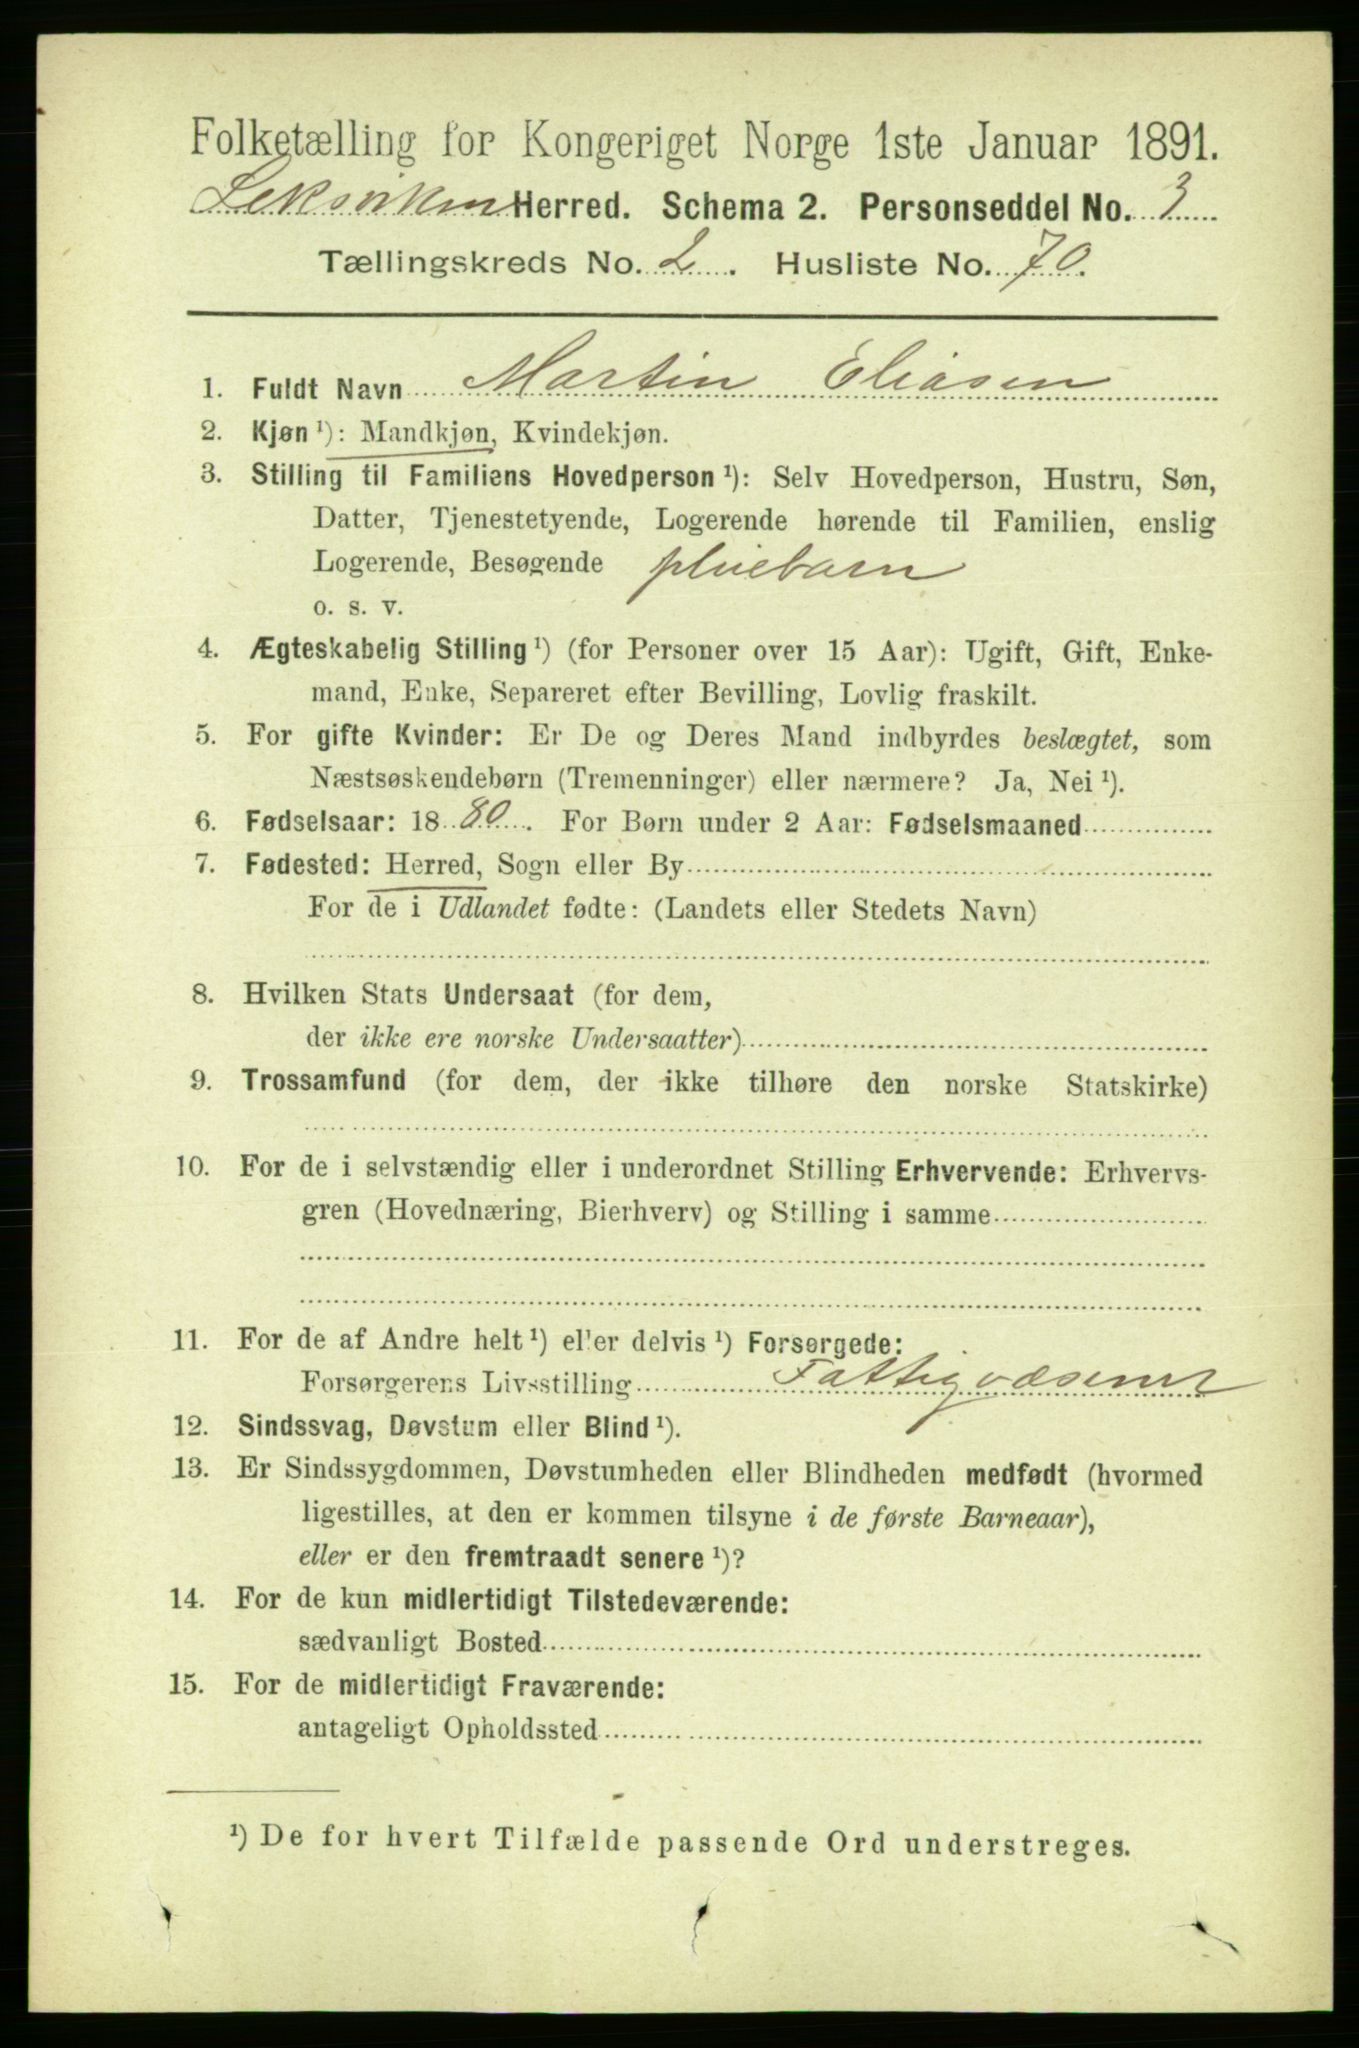 Folketælling for Kongeriget Norge 1ste Januar 1891.
Leksviken Herred. Schema 2. Personseddel No. 3
Tællingskreds No. 2. Husliste No. 70.
1. Fuldt Navn Martin Eliasen
2. Kjøn ¹): Mandkjøn, Kvindekjøn.
3. Stilling til Familiens Hovedperson ¹): Selv Hovedperson, Hustru, Søn,
Datter, Tjenestetyende, Logerende hørende til Familien, enslig
Logerende, Besøgende pleiebarn
o. s. v.
4. Ægteskabelig Stilling ¹) (for Personer over 15 Aar): Ugift, Gift, Enke-
mand, Enke, Separeret efter Bevilling, Lovlig fraskilt.
5. For gifte Kvinder: Er De og Deres Mand indbyrdes beslægtet, som
Næstsøskendebørn (Tremenninger) eller nærmere? Ja, Nei ¹).
6. Fødselsaar: 1880. For Børn under 2 Aar: Fødselsmaaned
7. Fødested: Herred, Sogn eller By
For de i Udlandet fødte: (Landets eller Stedets Navn)
8. Hvilken Stats Undersaat (for dem,
der ikke ere norske Undersaatter)
9. Trossamfund (for dem, der ikke tilhøre den norske Statskirke)
10. For de i selvstændig eller i underordnet Stilling Erhvervende: Erhvervs-
gren (Hovednæring, Bierhverv) og Stilling i samme
11. For de af Andre helt ¹) eller delvis ¹) Forsørgede:
Forsørgerens Livsstilling Fattigvæsenet
12. Sindssvag, Døvstum eller Blind ¹).
13. Er Sindssygdommen, Døvstumheden eller Blindheden medfødt (hvormed
ligestilles, at den er kommen tilsyne i de første Barneaar),
eller er den fremtraadt senere ¹)?
14. For de kun midlertidigt Tilstedeværende:
sædvanligt Bosted
15. For de midlertidigt Fraværende:
antageligt Opholdssted
¹) De for hvert Tilfælde passende Ord understreges.